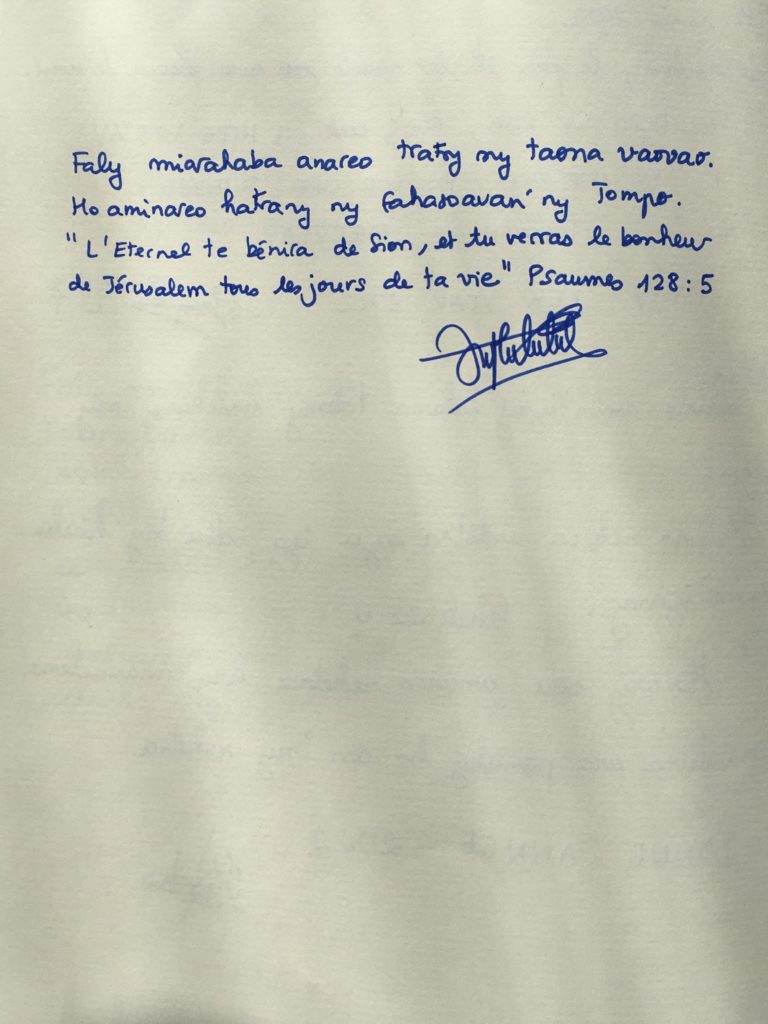 Faly miarahaba anareo tratry ny taona vaovao.
Ho aminareo hatrany ny fahasoavan' ny Tompo.
"L'Eternel te bénira de Sion, et tu verras le bonheur
de Jérusalem tous les jours de ta vie" Psaumes 128:5